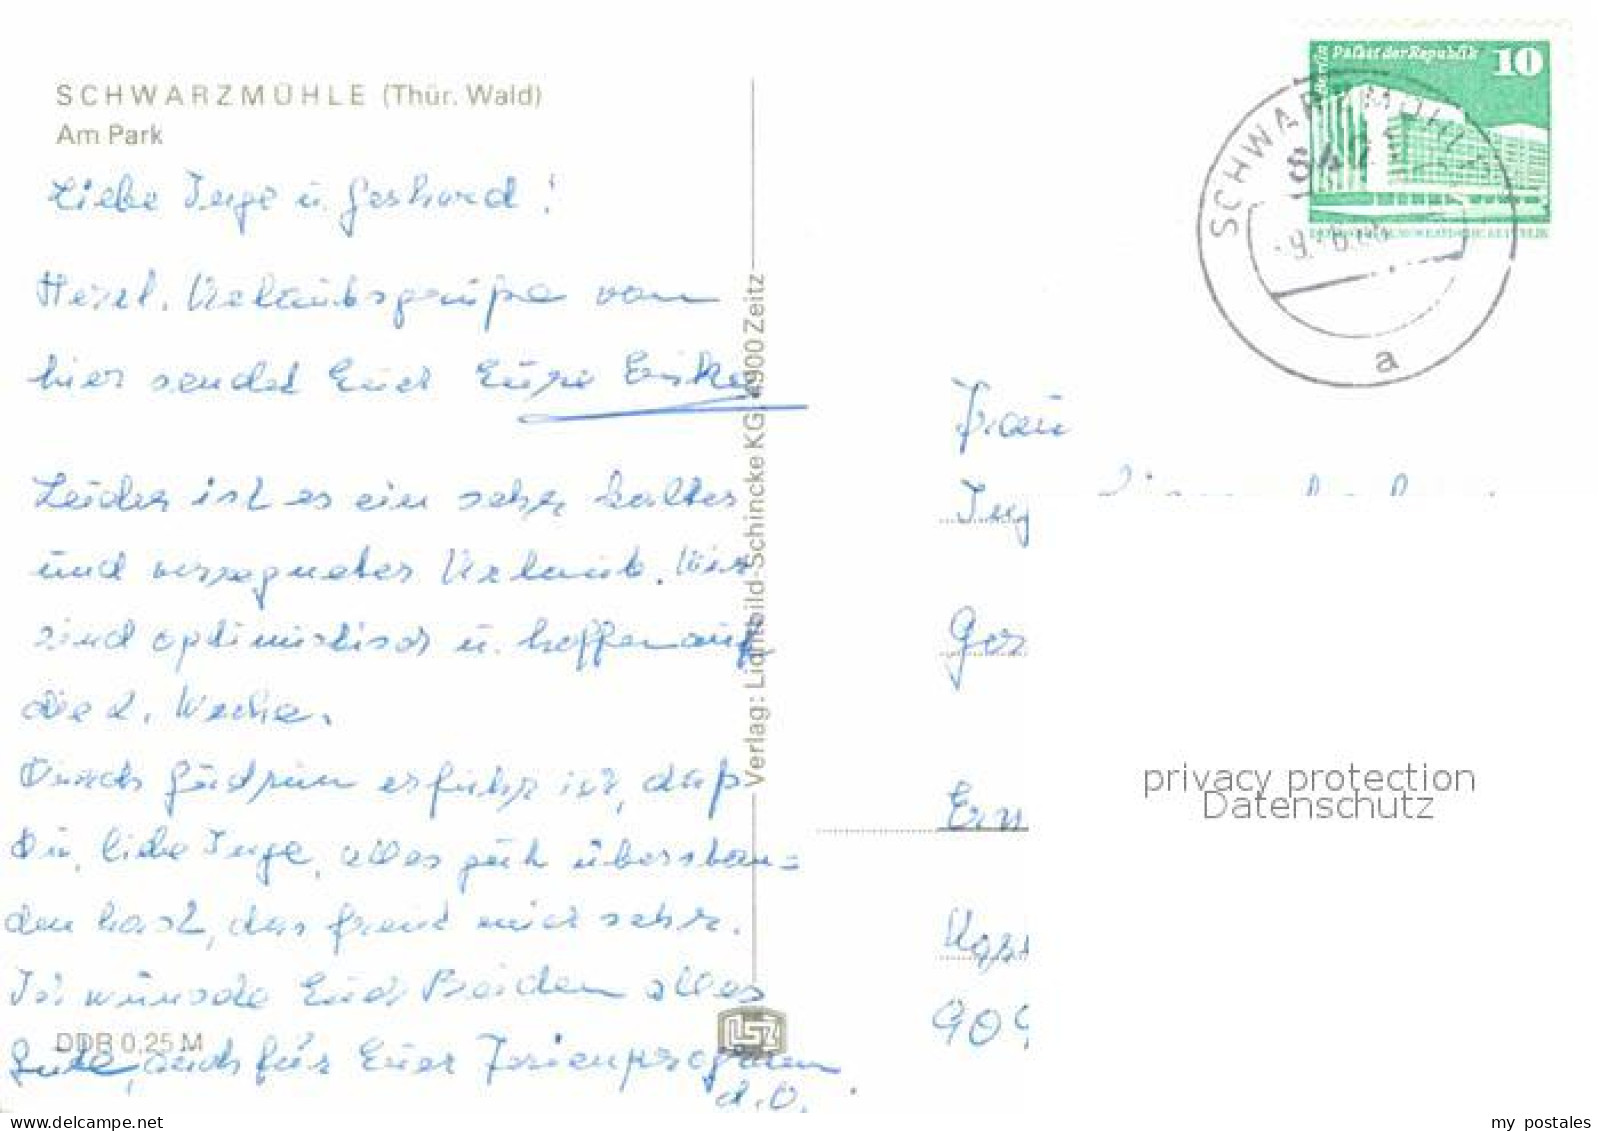 SCHWARZMÜHLE (Thür. Wald)
Am Park
Liebe Inge u. Gerhard!
Herzl. Urlaubsgrüße von
hier sendet Euch Eure
Leider ist es ein sehr kaltes
und verregneter Urlaub. Wir
sind optimistisch u. hoffen auf
die 2. Woche.
Durch Gudrun erfuhr ich, daß
Du, liebe Inge, alles gut überstan=
den hast, das freut mich sehr.
Ich wünsche Euch Beiden alles
Gute, auch für Euer Ferienprogramm
d. O.
DDR 0,25 M
Verlag: Lichtbild-Schincke KG, 4900 Zeitz
LSZ
Berlin Palast der Republik 10
SCHWARZMÜHLE
a
Frau
Ing
Ger
Ern
909
privacy protection
Datenschutz
my postales